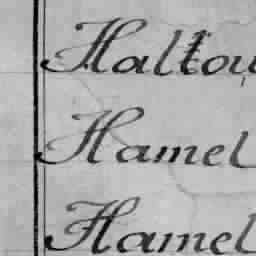 Haltou
Hamel
Hamel